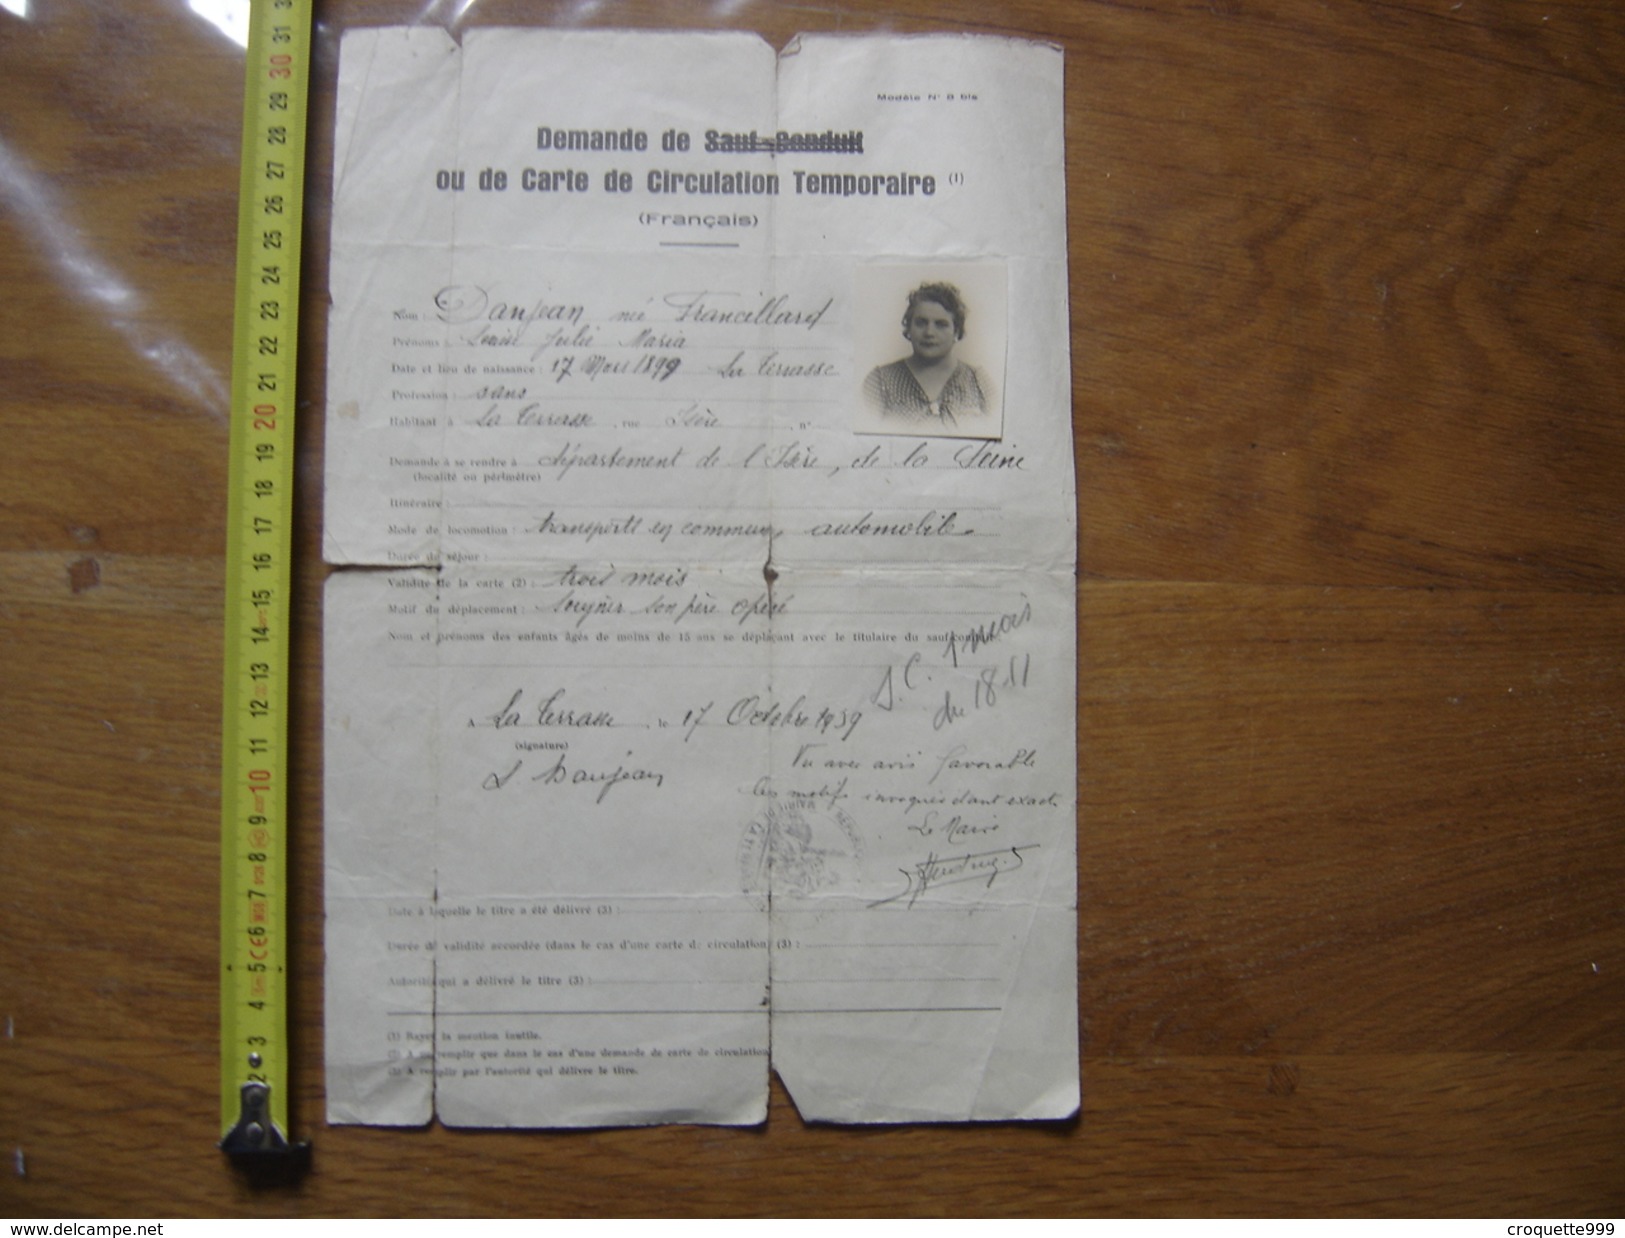 Modèle N° 8 bis
Demande de Sauf-Conduit
ou de Carte de Circulation Temporaire (1)
(Français)
Nom : Danjean née Francillard
Prénoms : Louise Julie Maria
Date et lieu de naissance : 17 Mars 1899 La Terrasse
Profession : sans
Habitant à La Terrasse, rue Isère, n°
Demande à se rendre à département de l'Isère, de la Seine
(localité ou périmètre)
Itinéraire :
Mode de locomotion : transports en commun, automobile
Durée du séjour :
Validité de la carte (2) : trois mois
Motif du déplacement : Soigner son père opéré
Nom et prénoms des enfants âgés de moins de 15 ans se déplaçant avec le titulaire du sauf-conduit:
S.C. 1 mois
du 18.11
A La Terrasse, le 17 Octobre 1939
(signature)
L. Danjean
Vu avec avis favorable
les motifs invoqués étant exacts
Le Maire
Date à laquelle le titre a été délivré (3) :
Durée de validité accordée (dans le cas d'une carte de circulation) (3) :
Autorité qui a délivré le titre (3) :
(1) Rayer la mention inutile.
(2) A remplir que dans le cas d'une demande de carte de circulation
(3) A remplir par l'autorité qui délivre le titre.
www.delcampe.net
croquette999